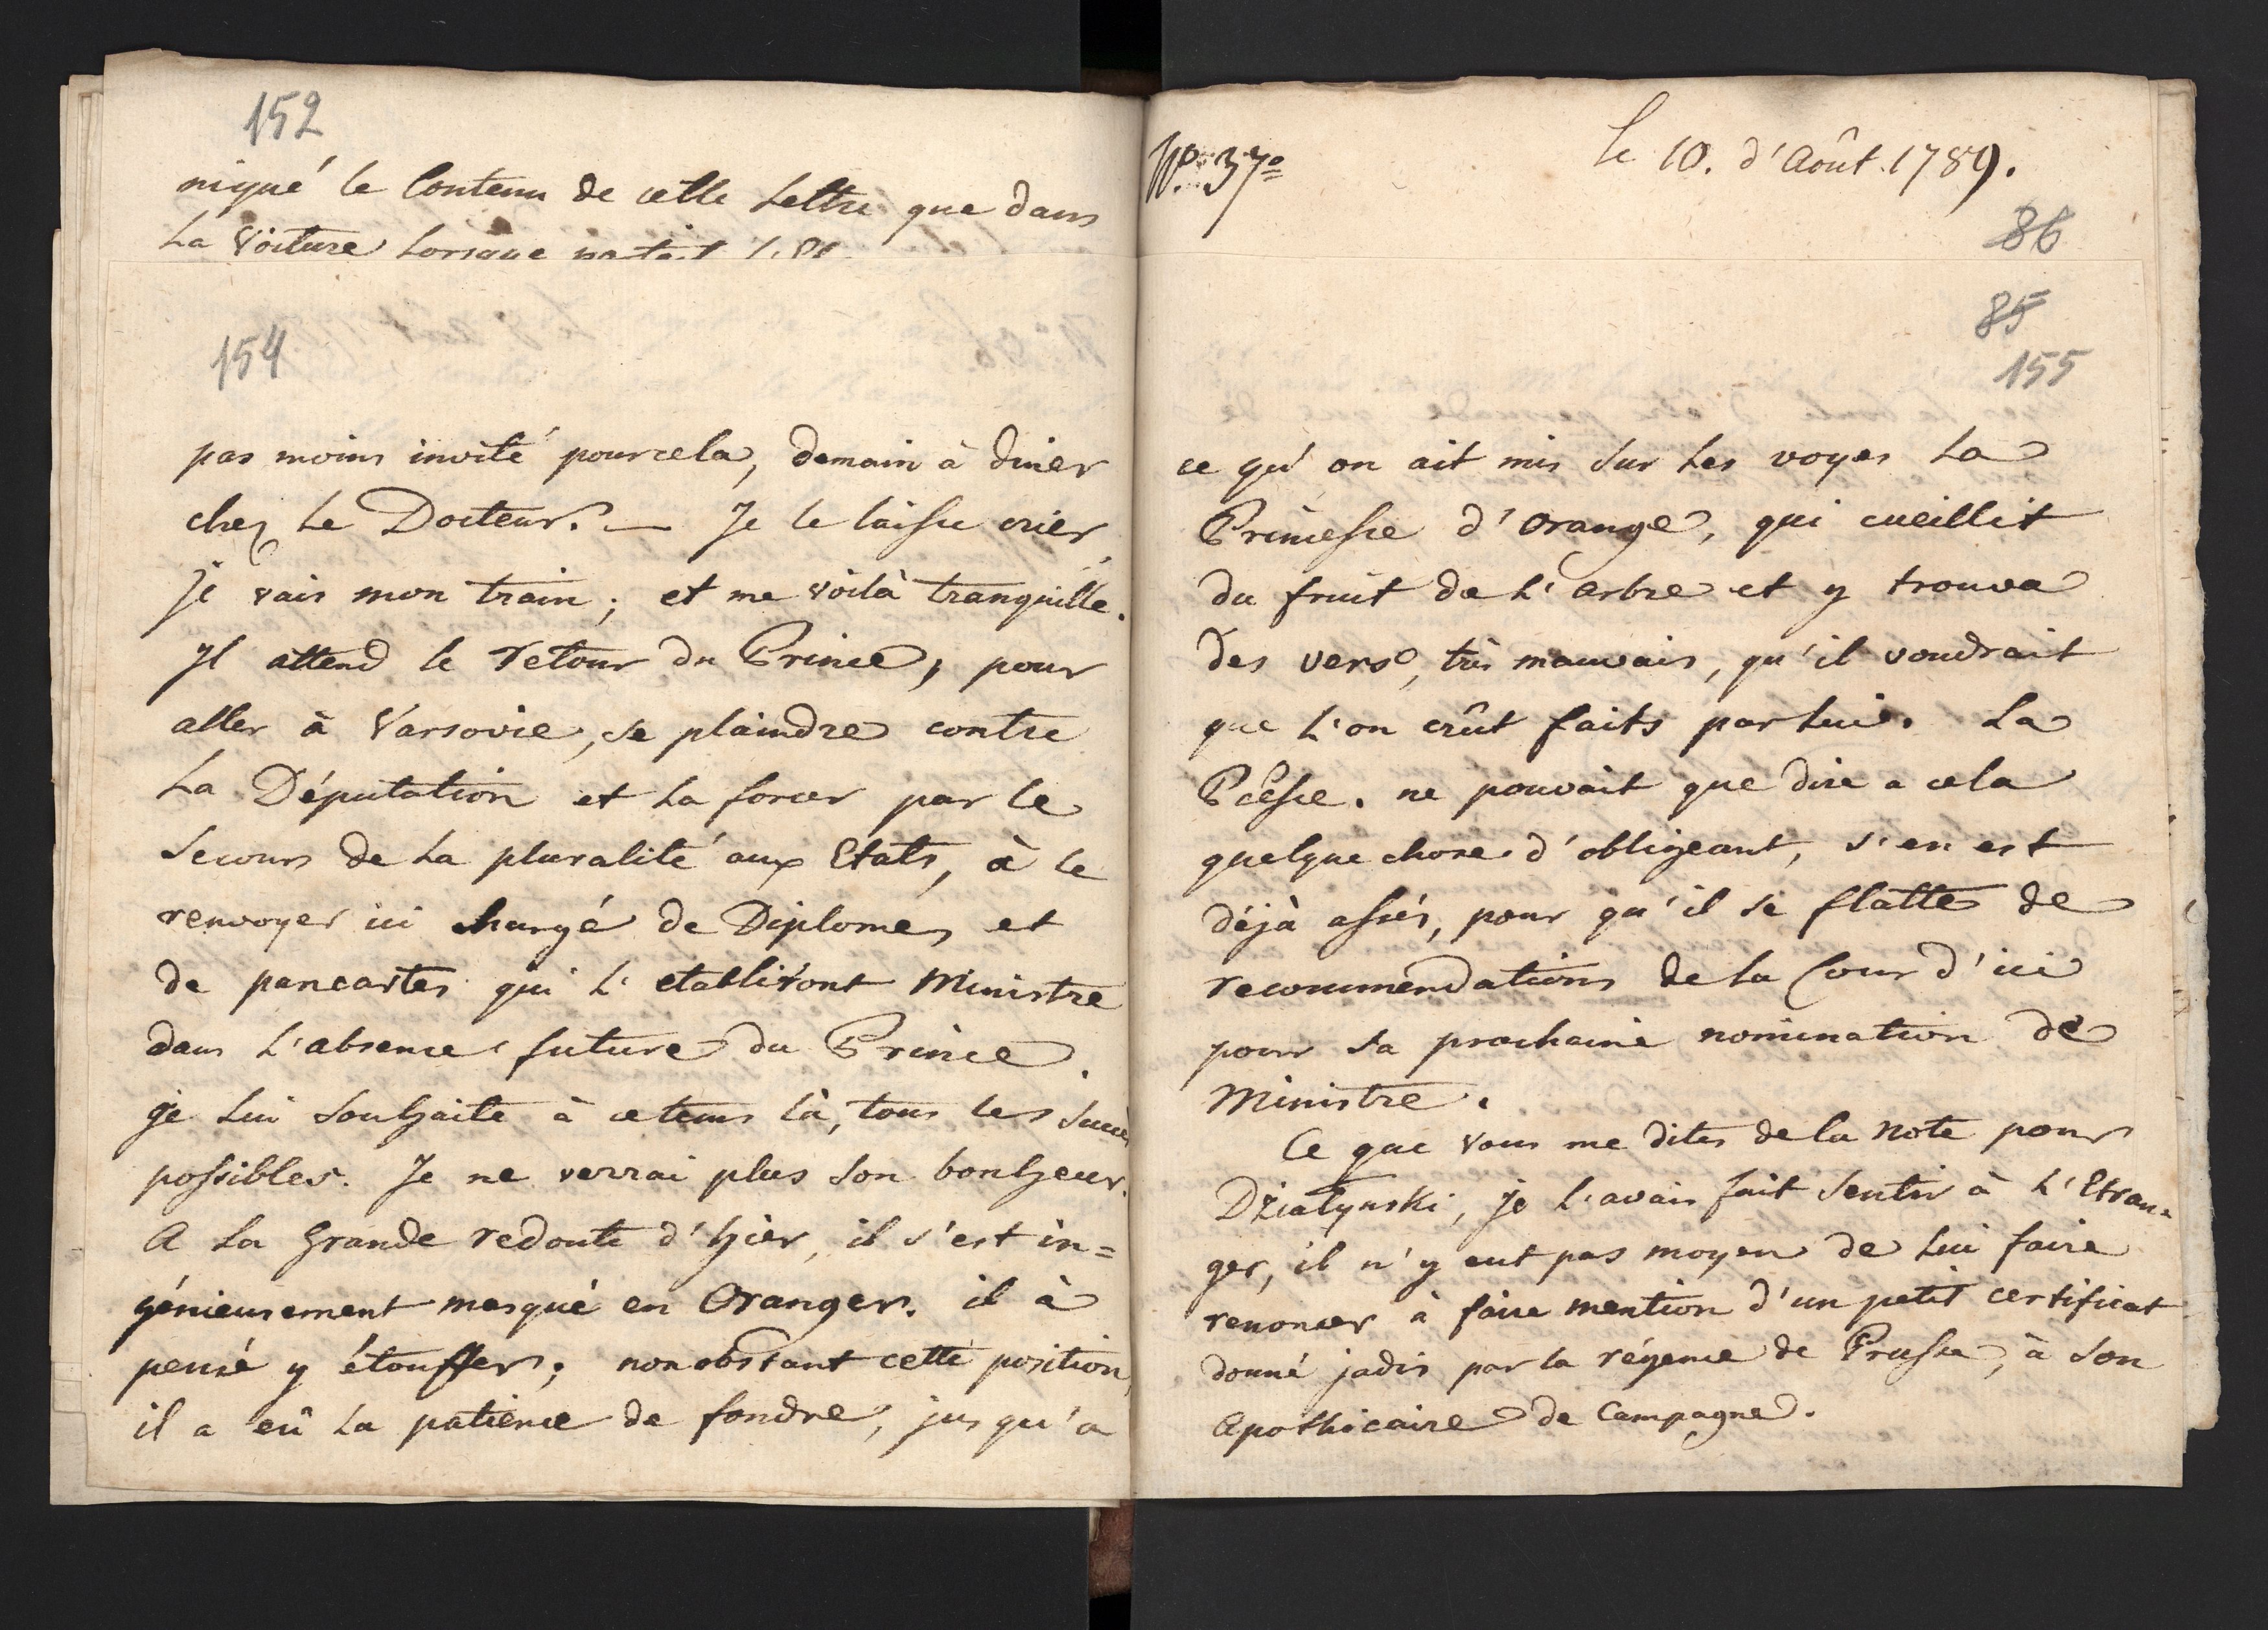 152
niqué le Contenu de cette Lettre que dans
La Voiture Lorsque
154
pas moins invité pourcela, demain à diner
chez Le Docteur. — Je le laisse crier,
je vais mon train; et me voilà tranquille.
Il attend le retour du Prince, pour
aller à Varsovie, se plaindre contre
La Députation et La forcer par le
Secours de La pluralité aux Etats, à le
renvoyer ici chargé de Diplomes et
de pancartes qui L'etabliront Ministre
dans L'absence future du Prince.
je Lui Souhaite à ce tems là, tous les Succès
possibles. Je ne verrai plus Son bonheur.
A La Grande redoute d'hier, il s'est in=
génieusement masqué en Oranger. il à
pensé y étouffer; nonobstant cette position,
il a eû La patience de fondre, jusqu'a
Nº. 37º
Le 10. d'Août. 1789.
86
85
155
ce qu'on ait mis Sur Les voyes La
Princesse d'Orange, qui cueillit
du fruit de L'arbre et y trouva
des vers, très mauvais, qu'il voudrait
que L'on crût faits par Lui. La
Pcesse. ne pouvait que dire a cela
quelque chose d'obligeant, s'en est
déjà assés, pour qu'il se flatte de
recommendations de la Cour d'ici
pour sa prochaine nomination de
Ministre.
Ce que Vous me dites de la Note pour
Działynski, je l'avais fait Sentir à L'Etran=
ger, il n'y eut pas moyen de Lui faire
renoncer à faire mention d'un petit certificat
donné jadis par la régence de Prusse, à Son
Apothicaire de Campagne.